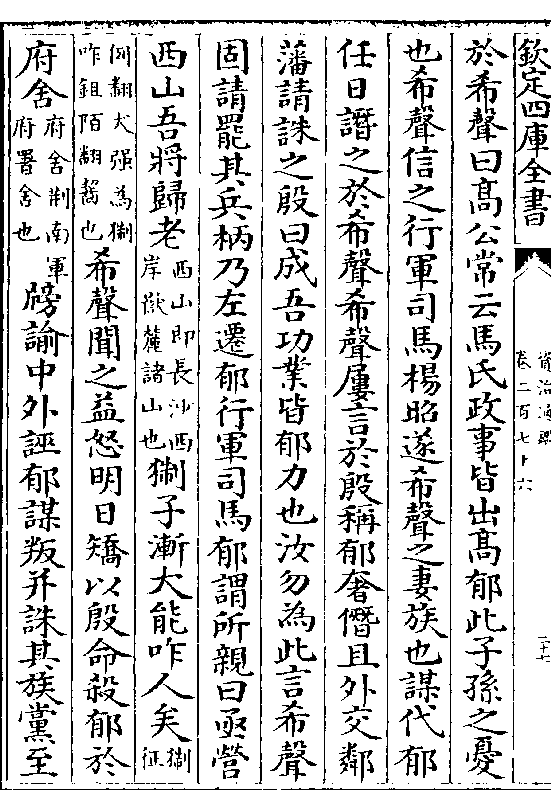 欽定四庫全書
資治通鑑
卷二百七十六
三十七
於希聲曰髙公常云馬氏政事皆出髙郁此子孫之憂
也希聲信之行軍司馬楊昭遂希聲之妻族也謀代郁
任日譖之於希聲希聲屢言於殷稱郁奢僭且外交鄰
藩請誅之殷曰成吾功業皆郁力也汝勿為此言希聲
固請罷其兵柄乃左遷郁行軍司馬郁謂所親曰亟營
西山吾將歸老西山即長沙西岸嶽麓諸山也猘子漸大能咋人矣猘征
例翻犬强為猘咋鉏陌翻齧也希聲聞之益怒明日矯以殷命殺郁於
府舍府舍荆南軍府署舍也牓諭中外誣郁謀叛并誅其族黨至